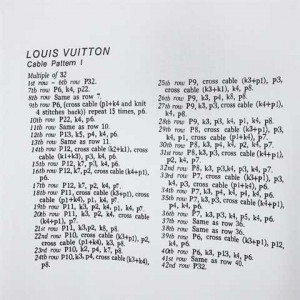 LOUIS VUITTON
Cable Pattern I
Multiple of 32
1st row - 6th row P32.
7th row P6, k4, p22.
8th row Same as row 7.
9th row P6, (cross cable (p1+k4 and knit
4 stitches back)) repeat 15 times, p6.
10th row P22, k4, p6.
11th row Same as row 10.
12th row P13, k5, p4, k4, p6.
13th row Same as row 11.
14th row P12, cross cable (k2+k1), cross
cable (k1+k3), p3, k4, p6.
15th row P12, k7, p3, k4, p6.
16th row P12, k7, p3, cross cable (k4+p1),
p5.
17th row P12, k7, p2, k4, p7.
18th row P11, cross cable (k3+p1), cross
cable (p1+k4), p1, k4, p7.
19th row P11, k3, p2, k4, p1, k4, p7.
20th row P11, k3, p2, k4, cross cable (p1+
k4), p7.
21st row P11, k3, p2, k8, p8.
22nd row P10, cross cable (k3+p1), p2,
cross cable (p1+k4), k3, p8.
23rd row P10, k2, p4, k7, p8.
24th row P10, k3, p4, cross cable (k3+k4),
p8.
25th row P9, cross cable (k3+p1), p3,
cross cable (p1+k3), k4, p8.
26th row P9, k3, p4, k8, p8.
27th row P9, k3, p3, cross cable (k4+p1),
k4, p8.
28th row P9, k3, p3, k4, p1, k4, p8.
29th row P8, cross cable (k3+p1), p3, k4,
p1, cross cable (p1+k4), p7.
30th row P8, k3, p4, k4, p2, k4, p7.
31st row P8, k3, p3, cross cable (k4+p1),
p2, k4, p7.
32nd row P8, k3, p3, k4, p3, k4, p7.
33rd row P7, cross cable (k3+p1), p3, k4,
p3, cross cable (p1+k4), p6.
34th row P7, k3, p4, k4, p4, k4, p6.
35th row P7, k3, p3, cross cable (k4+p1),
p4, k4, p6.
36th row P7, k3, p3, k4, p5, k4, p6.
37th row Same as row 36.
38th row Same as row 36.
39th row P6, cross cable (k3+p1), p12,
k4, p6.
40th row P6, k3, p13, k4, p6.
41st row Same as row 40.
42nd row P32.